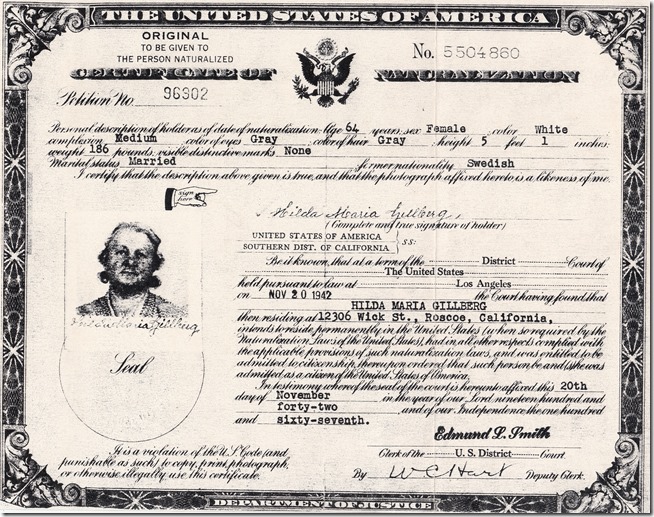 THE UNITED STATES OF AMERICA
ORIGINAL
TO BE GIVEN TO
THE PERSON NATURALIZED
No. 5504860
CERTIFICATE OF NATURALIZATION
Petition No. 96302
Personal description of holder as of date of naturalization: Age 64 years; sex Female color White
complexion Medium color of eyes Gray color of hair Gray height 5 feet 1 inches;
weight 186 pounds; visible distinctive marks None
Marital status Married former nationality Swedish
I certify that the description above given is true, and that the photograph affixed hereto is a likeness of me.
sign here
Hilda Maria Gillberg
(Complete and true signature of holder)
UNITED STATES OF AMERICA
SOUTHERN DIST. OF CALIFORNIA
ss:
Be it known, that at a term of the District Court of
The United States
held pursuant to law at Los Angeles
on NOV 20 1942 the Court having found that
HILDA MARIA GILLBERG
then residing at 12306 Wick St., Roscoe, California,
intends to reside permanently in the United States (when so required by the
Naturalization Laws of the United States), had in all other respects complied with
the applicable provisions of such naturalization laws, and was entitled to be
admitted to citizenship, thereupon ordered that such person be and (s)he was
admitted as a citizen of the United States of America.
In testimony whereof the seal of the court is hereunto affixed this 20th
day of November in the year of our Lord nineteen hundred and
forty-two and of our Independence the one hundred
and sixty-seventh.
Hilda Maria Gillberg
Seal
Edmund L. Smith
Clerk of the U. S. District Court.
By W C Hart Deputy Clerk.
It is a violation of the U.S. Code (and
punishable as such) to copy, print, photograph,
or otherwise illegally use this certificate.
DEPARTMENT OF JUSTICE